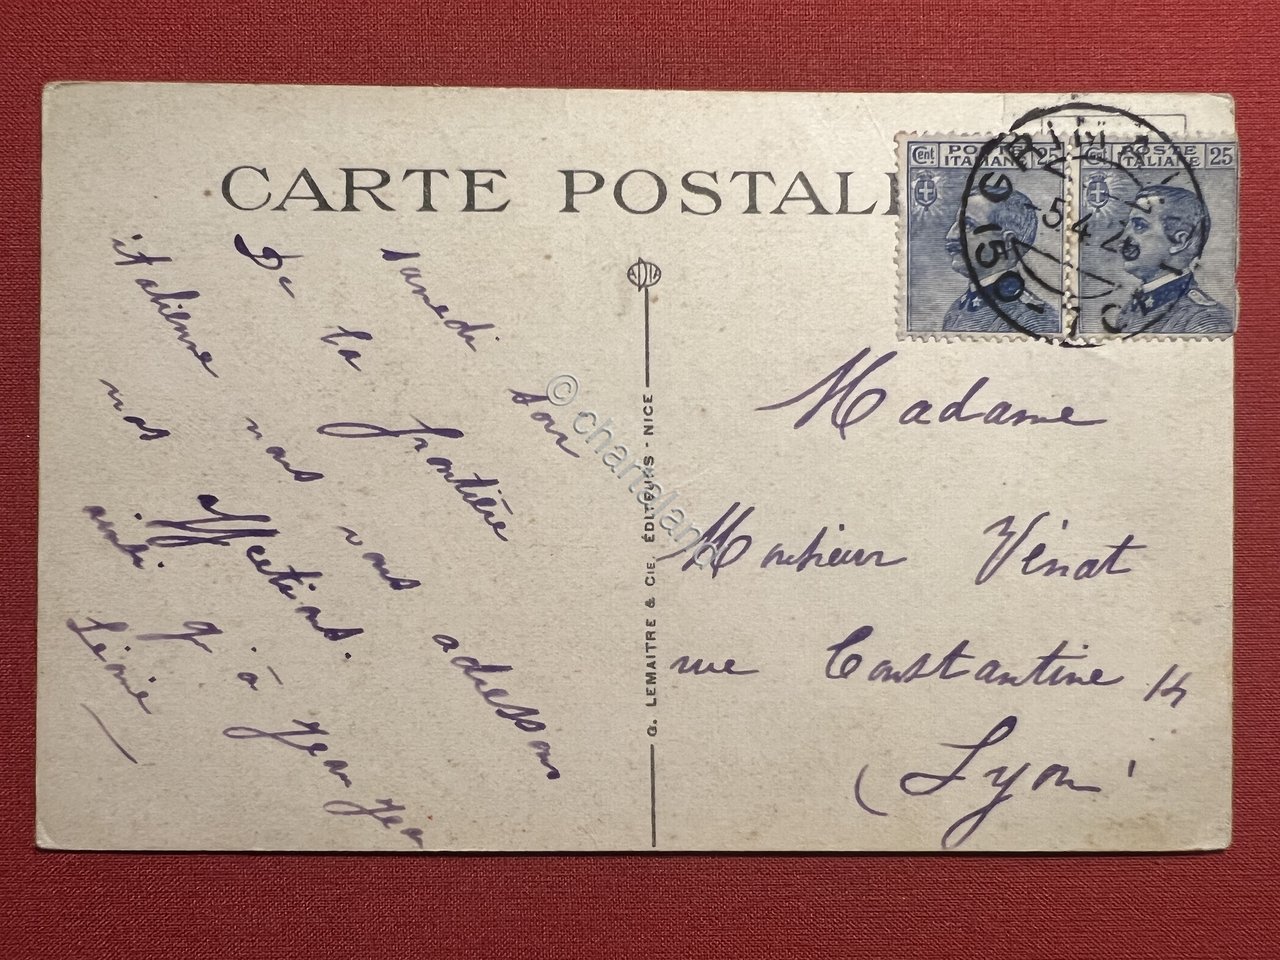 CARTE POSTALE
Cent. POSTE ITALIANE 25
Cent. POSTE ITALIANE 25
GRIM
5.4.26
15 O
samedi soir
De la frontière
italienne nous vous adressons
nos affections.
ainsi q' à Jean
Léonie
ADIA
G. LEMAITRE & CIE, ÉDITEURS - NICE
Madame
Monsieur Vénat
rue Constantine 14
Lyon
© chartaland